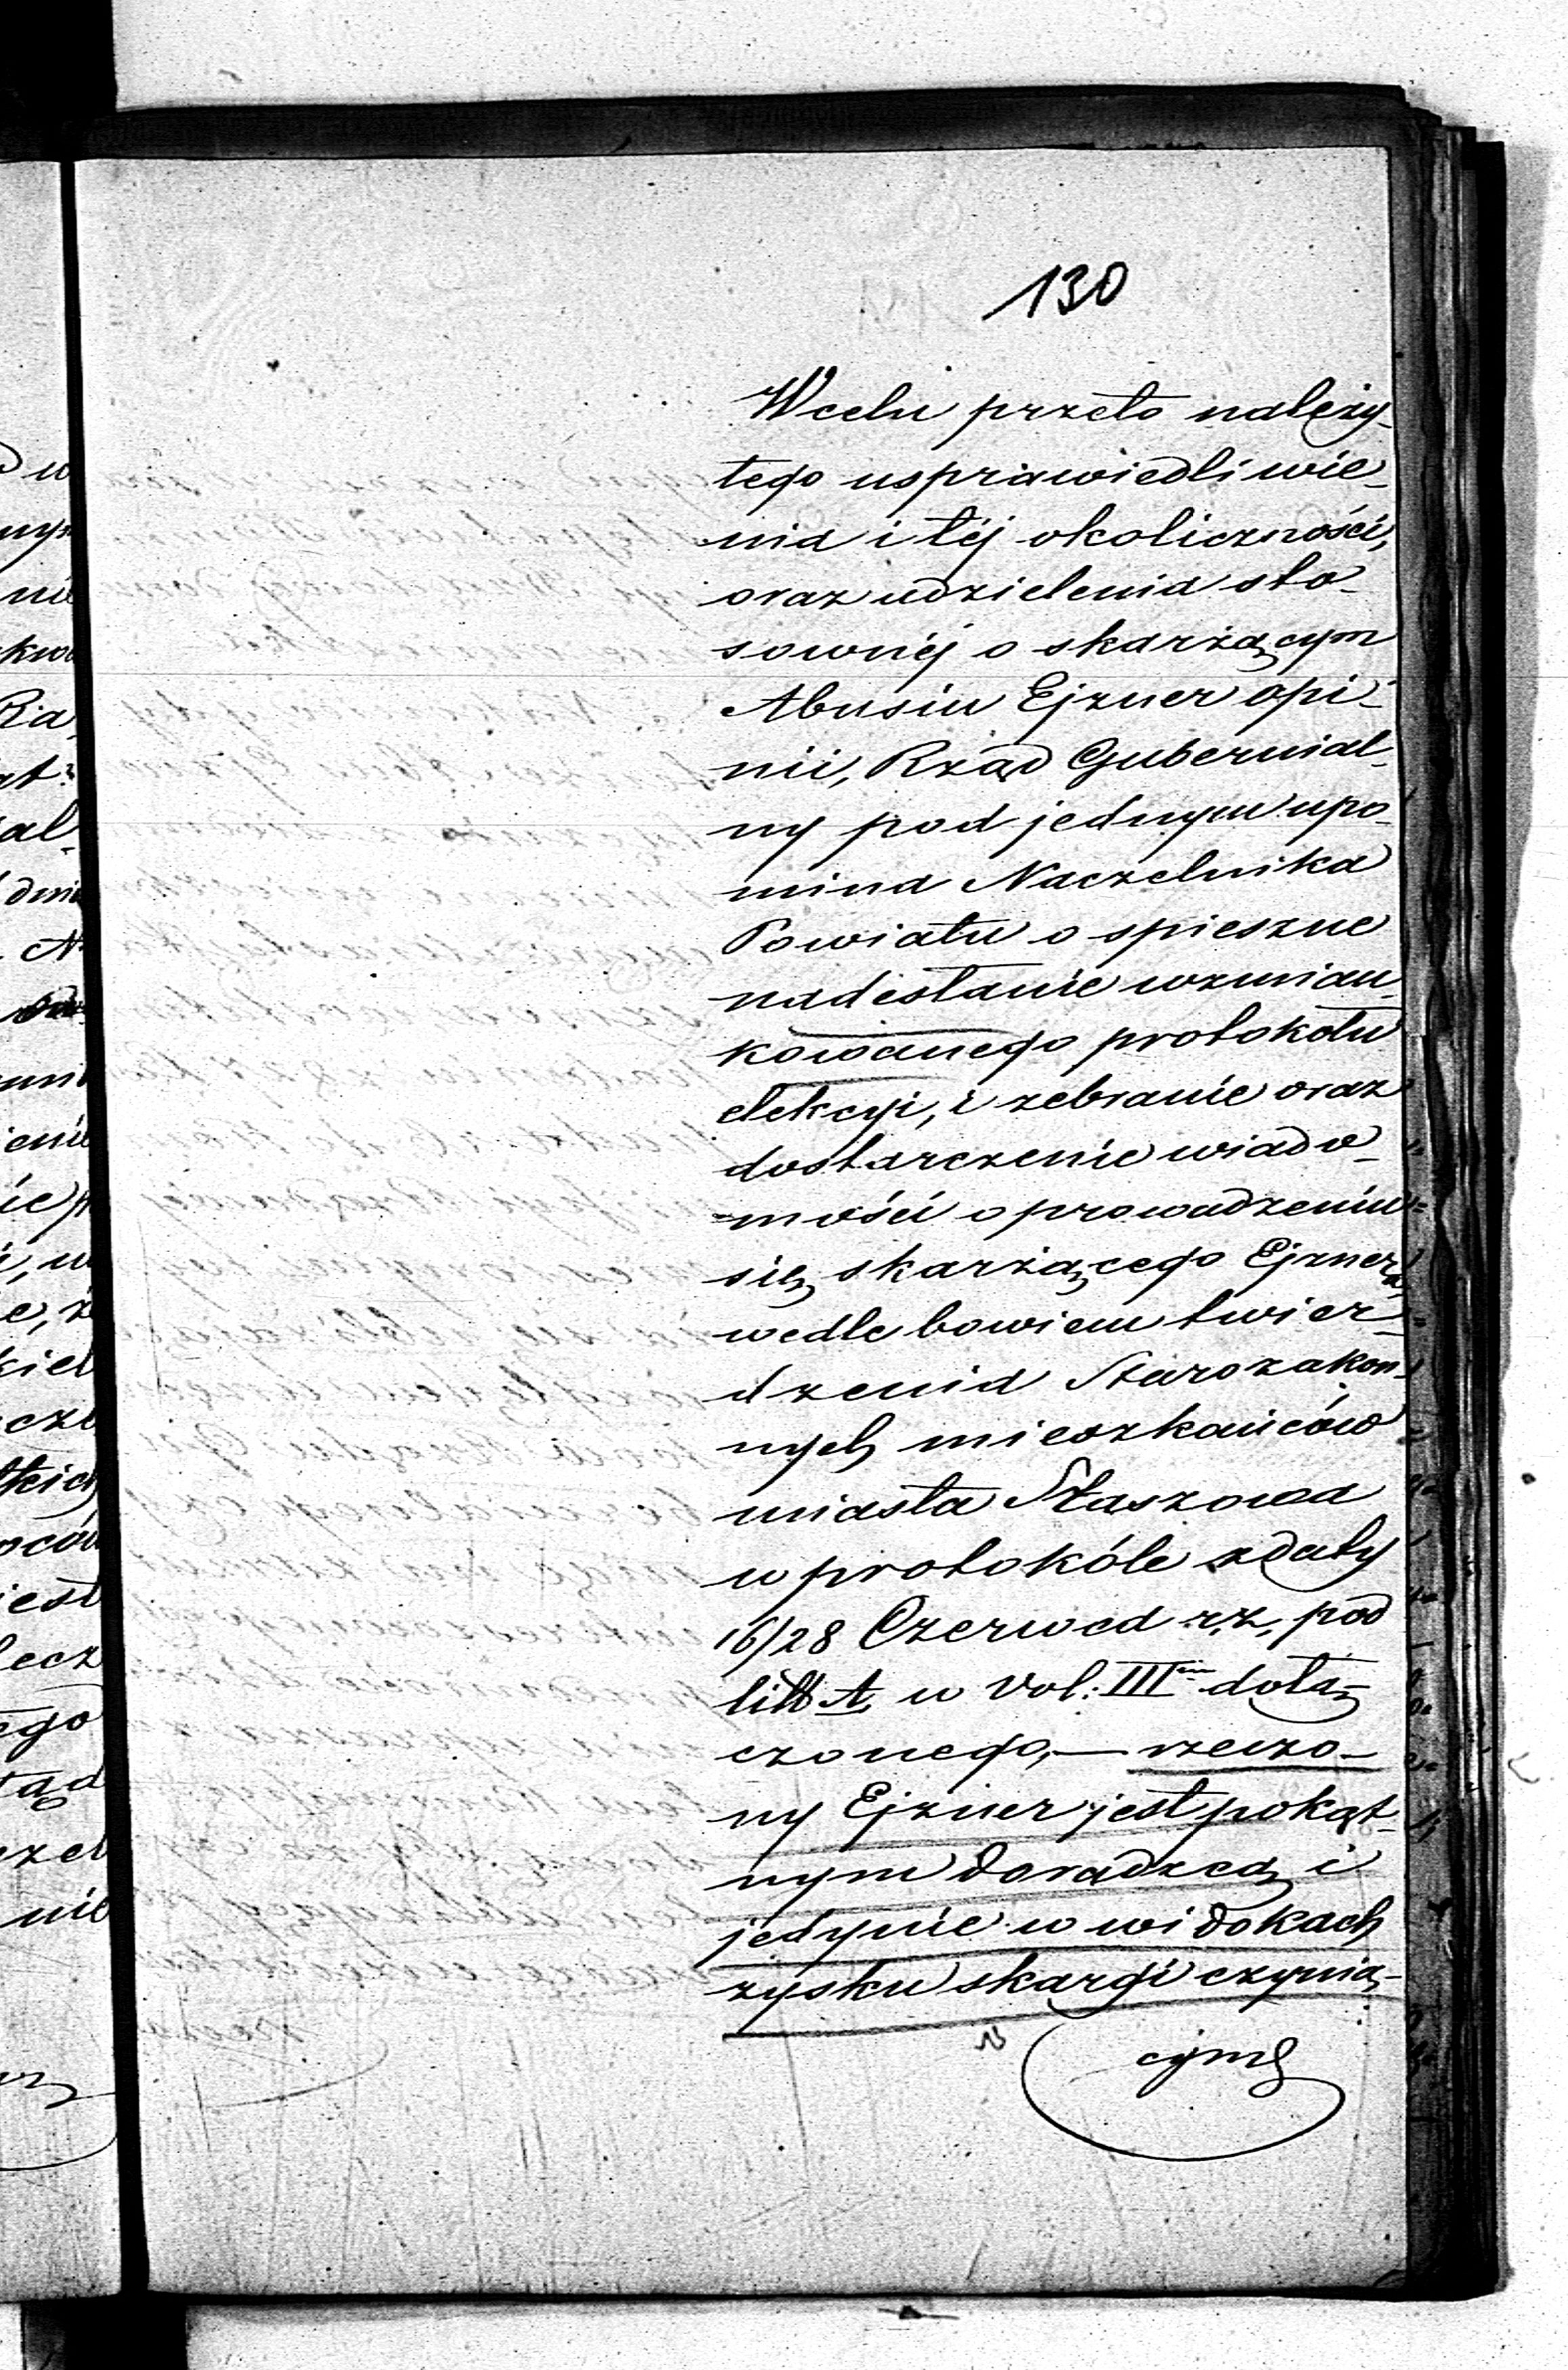 130
W celu przeto należy-
tego usprawiedliwie-
nia i téj okoliczności,
oraz udzielenia sto-
sownéj o skarżącym
Abusiu Ejzner opi-
nii, Rząd Gubernial-
ny pod jednym upo-
mina Naczelnika
Powiatu o spieszne
nadesłanie wzmian-
kowanego protokołu
elekcyi, i zebranie oraz
dostarczenie wiado-
mości o prowadzeniu
się skarżącego Ejznera
wedle bowiem twier-
dzenia Starozakon-
nych mieszkańców
miasta Staszowa
w protokóle z daty
16/28 Czerwca r. z. pod
litt A w Vol: III^m dołą-
czonego, — rzeczo-
ny Ejzner jest pokąt-
nym doradzcą i
jedynie w widokach
zysku skargi czynią-
cym